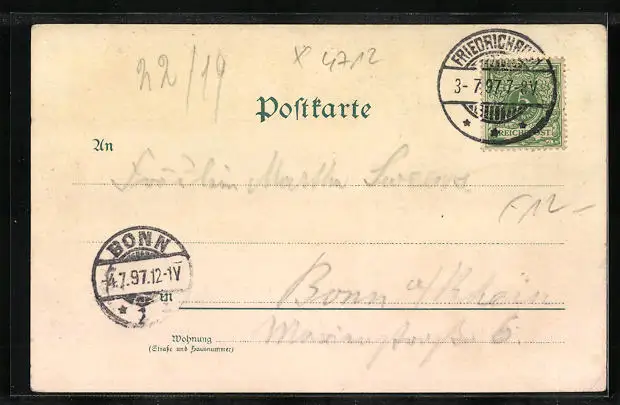 22/19
X 4712
Postkarte
FRIEDRICHRO
3- 7.97.7-8V
REICHSPOST
An
Fräulein Martha
F12-
BONN
-4.7.97.12-1V
in
Bonn a/Rhein
Wohnung
(Straße und Hausnummer)
6.